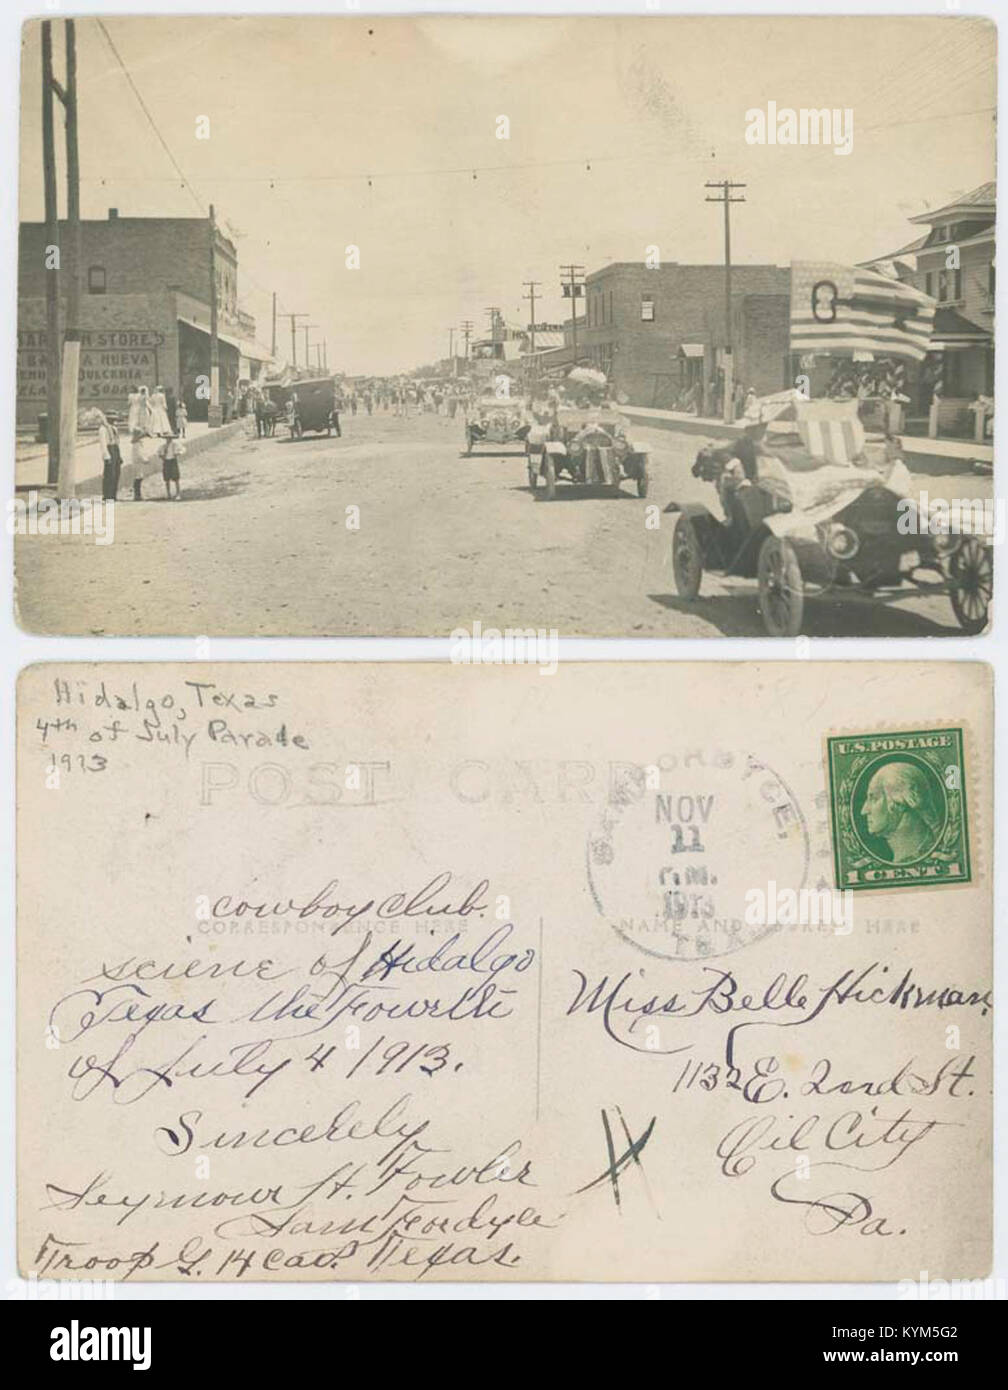 N STORE
NUEVA
DULCERIA
SODAS
Hidalgo, Texas
4th of July Parade
1913
POST CARD
U.S. POSTAGE
1 CENT 1
SAM FORDYCE,
NOV
11
P.M.
1913
TEX
cowboy club.
CORRESPONDENCE HERE
NAME AND ADDRESS HERE
sciene of Hidalgo
Texas the Fourth
of July 4 1913.
Sincerely
Seymour H. Fowler
Sam Fordyce
Troop G. 14 Cav. Texas.
Miss Belle Hickman,
1132 E. 2ond St.
Oil City
Pa.
a
alamy
alamy
Image ID: KYM5G2
www.alamy.com